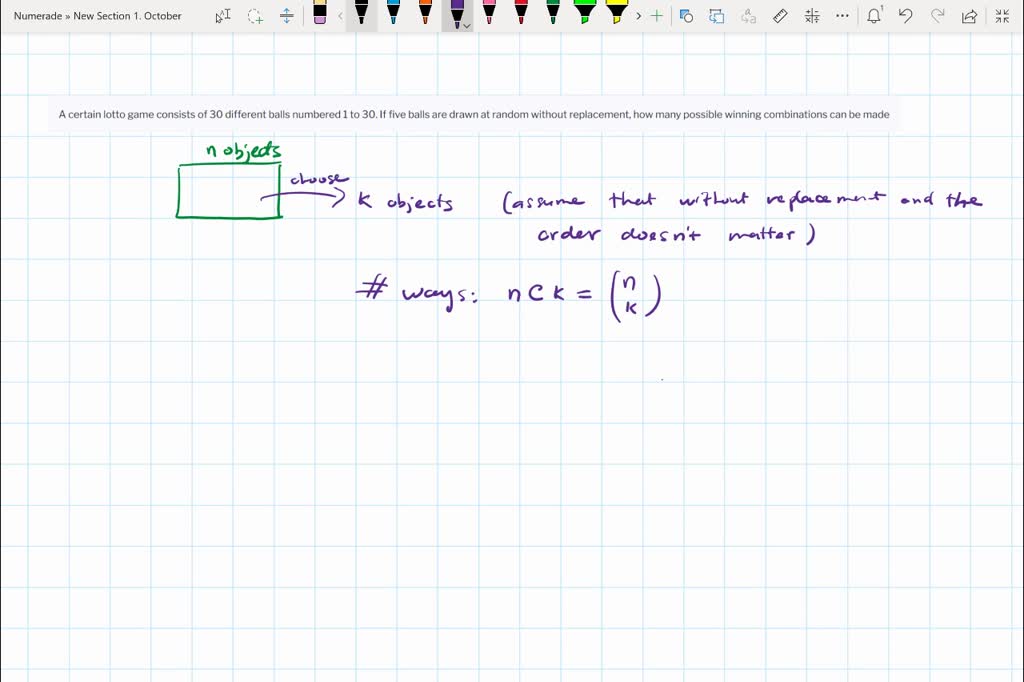 Numerade » New Section 1. October
A certain lotto game consists of 30 different balls numbered 1 to 30. If five balls are drawn at random without replacement, how many possible winning combinations can be made
n objects
choose
k objects (assume that without replacement and the
order doesn't matter)
# ways: n C k = (n k)